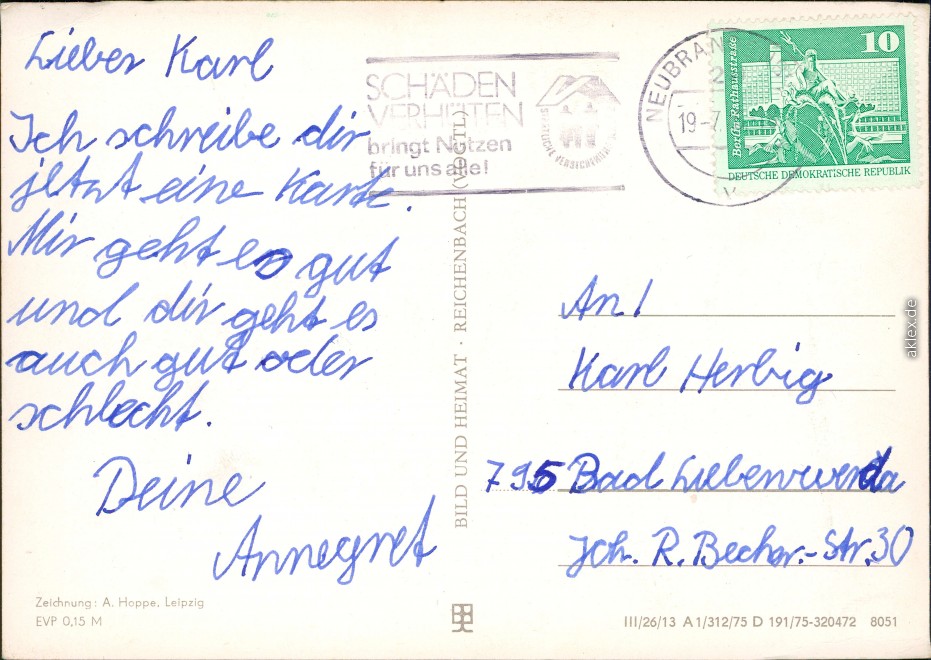 Lieber Karl
Ich schreibe dir
jetzt eine Karte.
Mir geht es gut
und dir geht es
auch gut oder
schlecht.
Deine
Annegret
Zeichnung: A. Hoppe, Leipzig
EVP 0,15 M
SCHÄDEN
VERHÜTEN
bringt Nutzen
für uns alle!
BILD UND HEIMAT · REICHENBACH (VOGTL)
NEUBRAN
19-7.
10
Berlin, Rathausstraße
DEUTSCHE DEMOKRATISCHE REPUBLIK
An /
Karl Herbig
795 Bad Liebenwerda
Joh. R. Becher-Str. 30
III/26/13 A 1/312/75 D 191/75-320472 8051
aklex.de